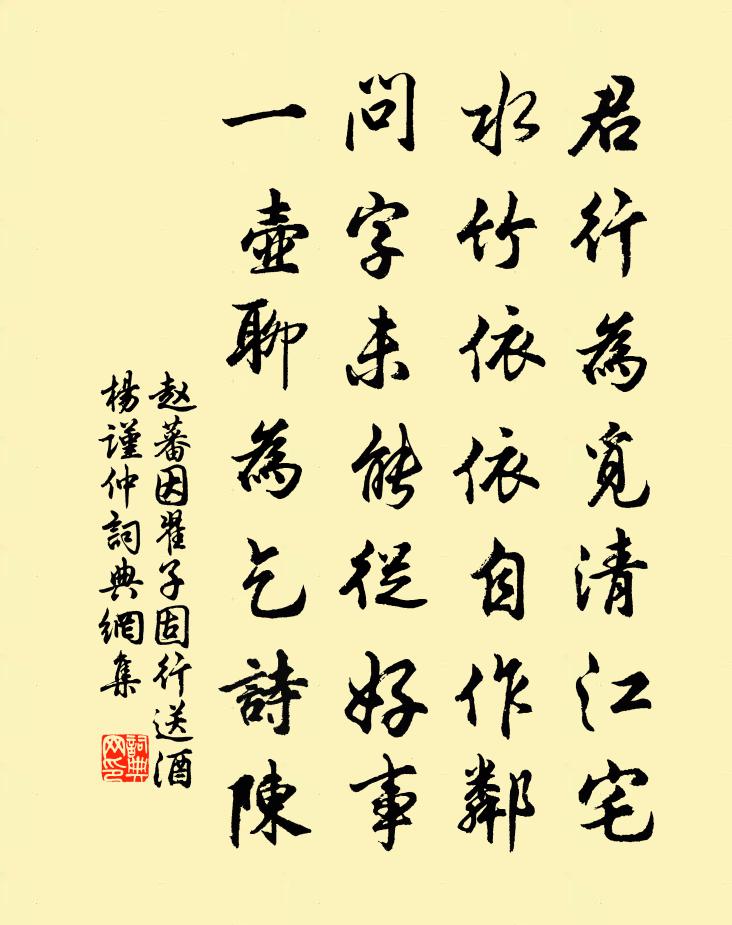 君行為覓清江宅
水竹依依自作鄰
問字未能從好事
一壺聊為乞詩陳
赵蕃因翟子固行送酒
楊謹仲詞典網集
詞典
网印